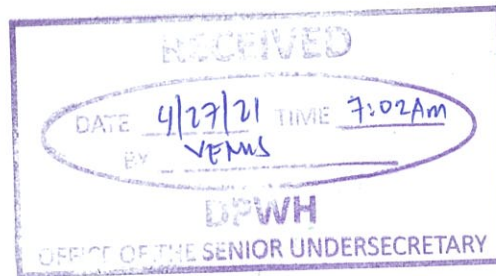 RECEIVED
DATE 4/27/21 TIME 7:02Am
BY VENUS
DPWH
OFFICE OF THE SENIOR UNDERSECRETARY